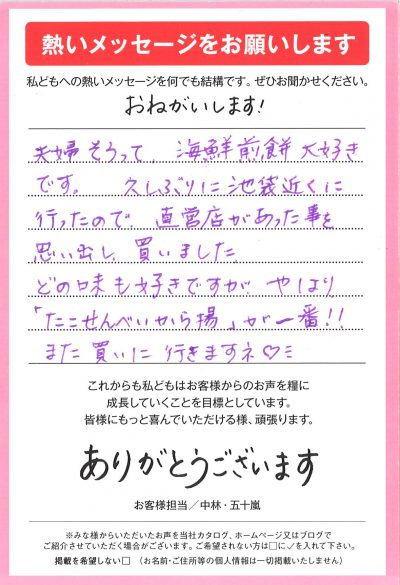 熱いメッセージをお願いします
私どもへの熱いメッセージを何でも結構です。ぜひお聞かせください。
おねがいします!
夫婦そろって、海鮮煎餅大好き
です。 久しぶりに池袋近くに
行ったので、直営店があった事を
思い出し、買いました
どの味も好きですが、やはり
「たこせんべいから揚」が一番!!
また買いに行きますネ♡ミ
これからも私どもはお客様からのお声を糧に
成長していくことを目標としています。
皆様にもっと喜んでいただける様、頑張ります。
ありがとうございます
お客様担当／中林・五十嵐
※みな様からいただいたお声を当社カタログ、ホームページ又はブログで
ご紹介させていただく場合がございます。ご希望されない方は□に✓を入れて下さい。
掲載を希望しない□ （お名前・ご住所等の個人情報は一切掲載いたしません）